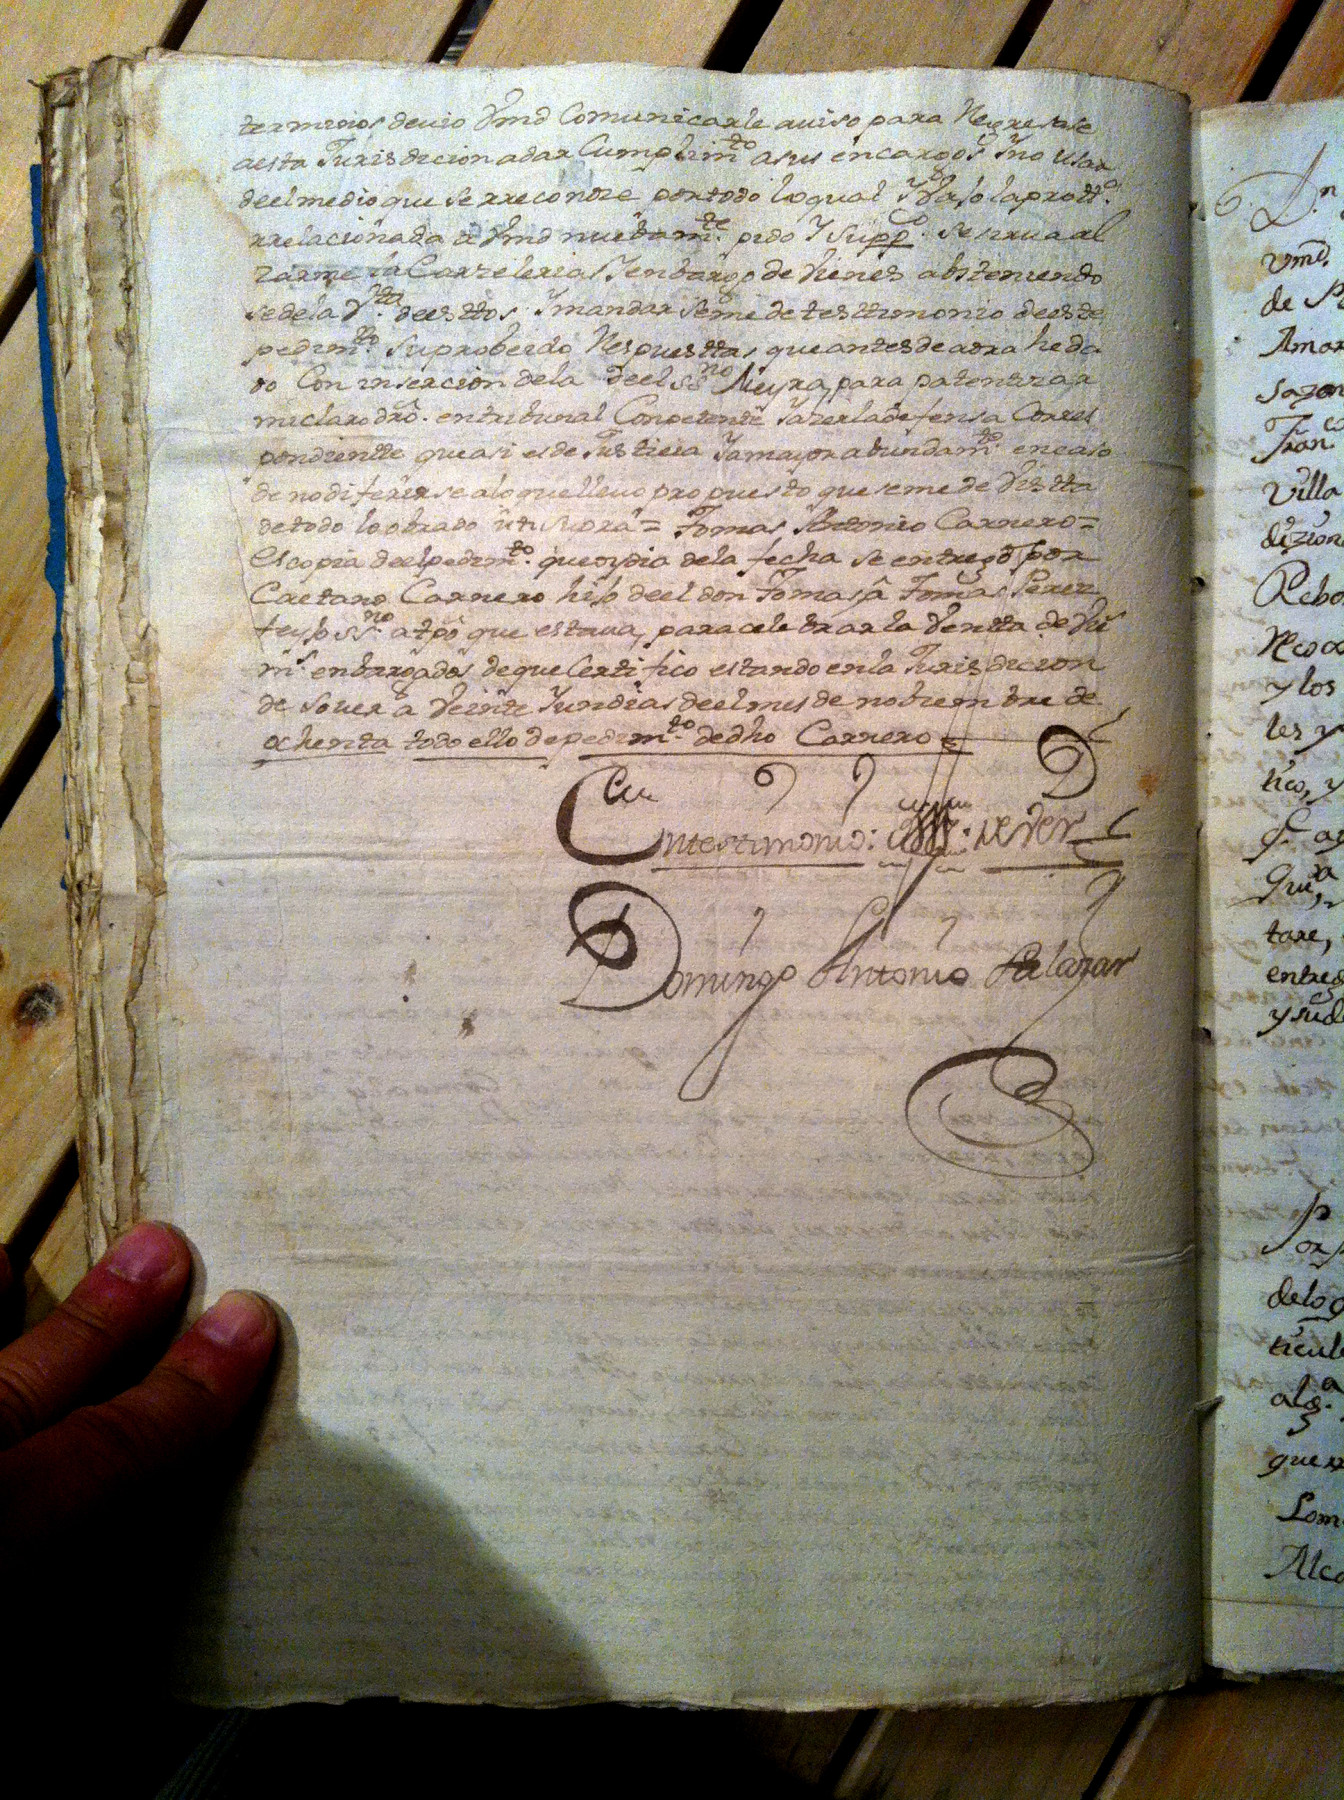 terminos devio Vmd Comunicarle aviso para Regresase
aesta Jurisdicion adar Cumplim.to asus encargos Yno Usar
deelmedio que se rreconoze portodo loqual Ybajo laprott.a
rrelacionada a Vmd nuebam.te pido Y Supp.co se sirva al
zarme la Carzeleria Yenbargo de Vienes absteniendo
sedela V.tta deesttos Ymandar seme de testtimonio deeste
pedim.to suprobeido Respuesttas que antes de aora he da
do Con insercion dela deel ss.no Neyra para patentizar
miclaro dro. en tribunal Conpetente Yazer la defensa Corres
pondientte que asi es de Justicia Yamayor abundam.to encaso
de nodiferirse aloquellevo propuesto que seme de Vistta
de todo lo obrado ut supra = Tomas Antonio Carnero =
Es copia deelpedim.to que oy dia dela fecha se entrego por
Caetano Carnero hijo deel don Tomas a Tomas Perez
ss.no atpo que estava para celebrar la Ventta de Vie
n.s enbargados de que Certifico estando en la Jurisdicion
de Sover a Veinte Yun dias deelmes de nobiembre de
ochenta todo ello de pedim.to dedho Carnero =
En testimonio de Verd
Domingo Antonio Salazar
D.n
Vmd.
de
Amar
sazon
Fran.co
Villa
dizion
Rebo
y los
les y
tico, y
tare,
entreg
y su de
Por
delo
ticul
que
Lom
Alca